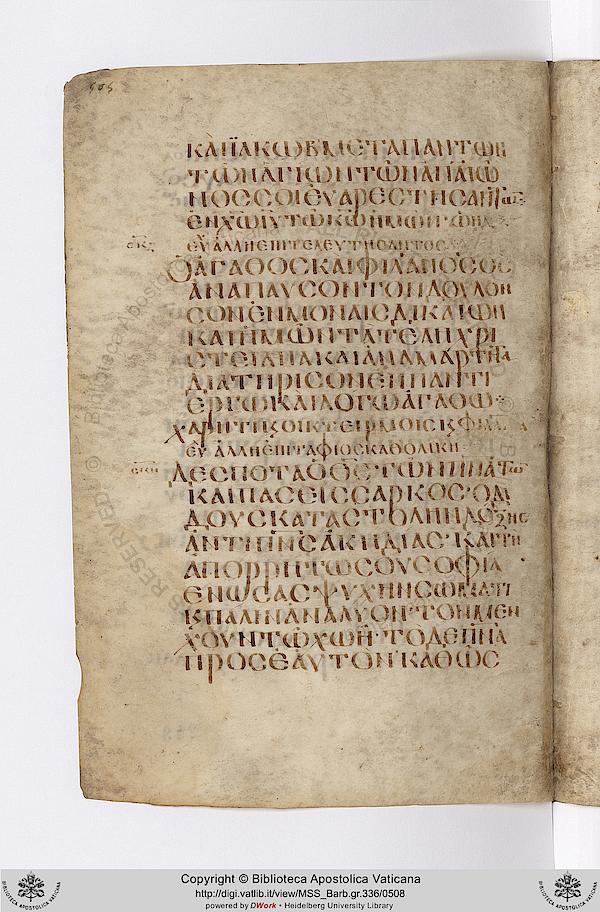 505
ΚΑΙ ΙΑΚΩΒ ΜΕΤΑ ΠΑΝΤΩΝ
ΤΩΝ ΑΓΙΩΝ ΤΩΝ ΑΠ ΑΙΩ
ΝΟΣ ΣΟΙ ΕΥΑΡΕΣΤΗΣΑΝ
ΕΝ ΧΩ ΙΥ ΤΩ ΚΩ ΗΜΩΝ
ΕΥ ΑΛΛΗ ΕΠΙ ΤΕΛΕΥΤΗΣΑΝΤΟΣ
Ο ΑΓΑΘΟΣ ΚΑΙ ΦΙΛΑΝΟΣ Ο ΘΣ
ΑΝΑΠΑΥΣΟΝ ΤΟΝ ΔΟΥΛΟΝ
ΣΟΝ ΕΝ ΜΟΝΑΙΣ ΔΙΚΑΙΩΝ
ΚΑΙ ΗΜΩΝ ΤΑ ΤΕΛΗ ΧΡΙ
ΣΤΕΙΑΝΑ ΚΑΙ ΑΝΑΜΑΡΤΗΤΑ
ΔΙΑΤΗΡΙΣΟΝ ΕΝ ΠΑΝΤΙ
ΕΡΓΩ ΚΑΙ ΛΟΓΩ ΑΓΑΘΩ
ΧΑΡΙΤΙ Κ ΟΙΚΤΕΙΡΜΟΙΣ Κ ΦΙΛΑΝ
ΕΥ ΑΛΛΗ ΕΠΙΤΑΦΙΟΣ ΚΑΘΟΛΙΚΗ
ΔΕΣΠΟΤΑ Ο ΘΣ ΤΩΝ ΠΝΑΤΩΝ
ΚΑΙ ΠΑΣΕΙΣ ΣΑΡΚΟΣ· Ο Δ
ΔΟΥΣ ΚΑΤΑΣΤΟΛΗΝ ΔΟΞΗΣ
ΑΝΤΙ ΠΝΣ ΑΚΗΔΙΑΣ· ΚΑΙ ΤΗ
ΑΠΟΡΡΗΤΩ ΣΟΥ ΣΟΦΙΑ
ΕΝΩΣΑΣ ΨΥΧΗΝ ΣΩΜΑΤΙ
Κ ΠΑΛΙΝ ΑΝΑΛΥΟΝ· ΤΟΝ ΜΕΝ
ΧΟΥΝ ΤΩ ΧΩΗ· ΤΟ ΔΕ ΠΝΑ
ΠΡΟΣ ΕΑΥΤΟΝ· ΚΑΘΩΣ
Copyright © Biblioteca Apostolica Vaticana
http://digi.vatlib.it/view/MSS_Barb.gr.336/0508
powered by DWork • Heidelberg University Library